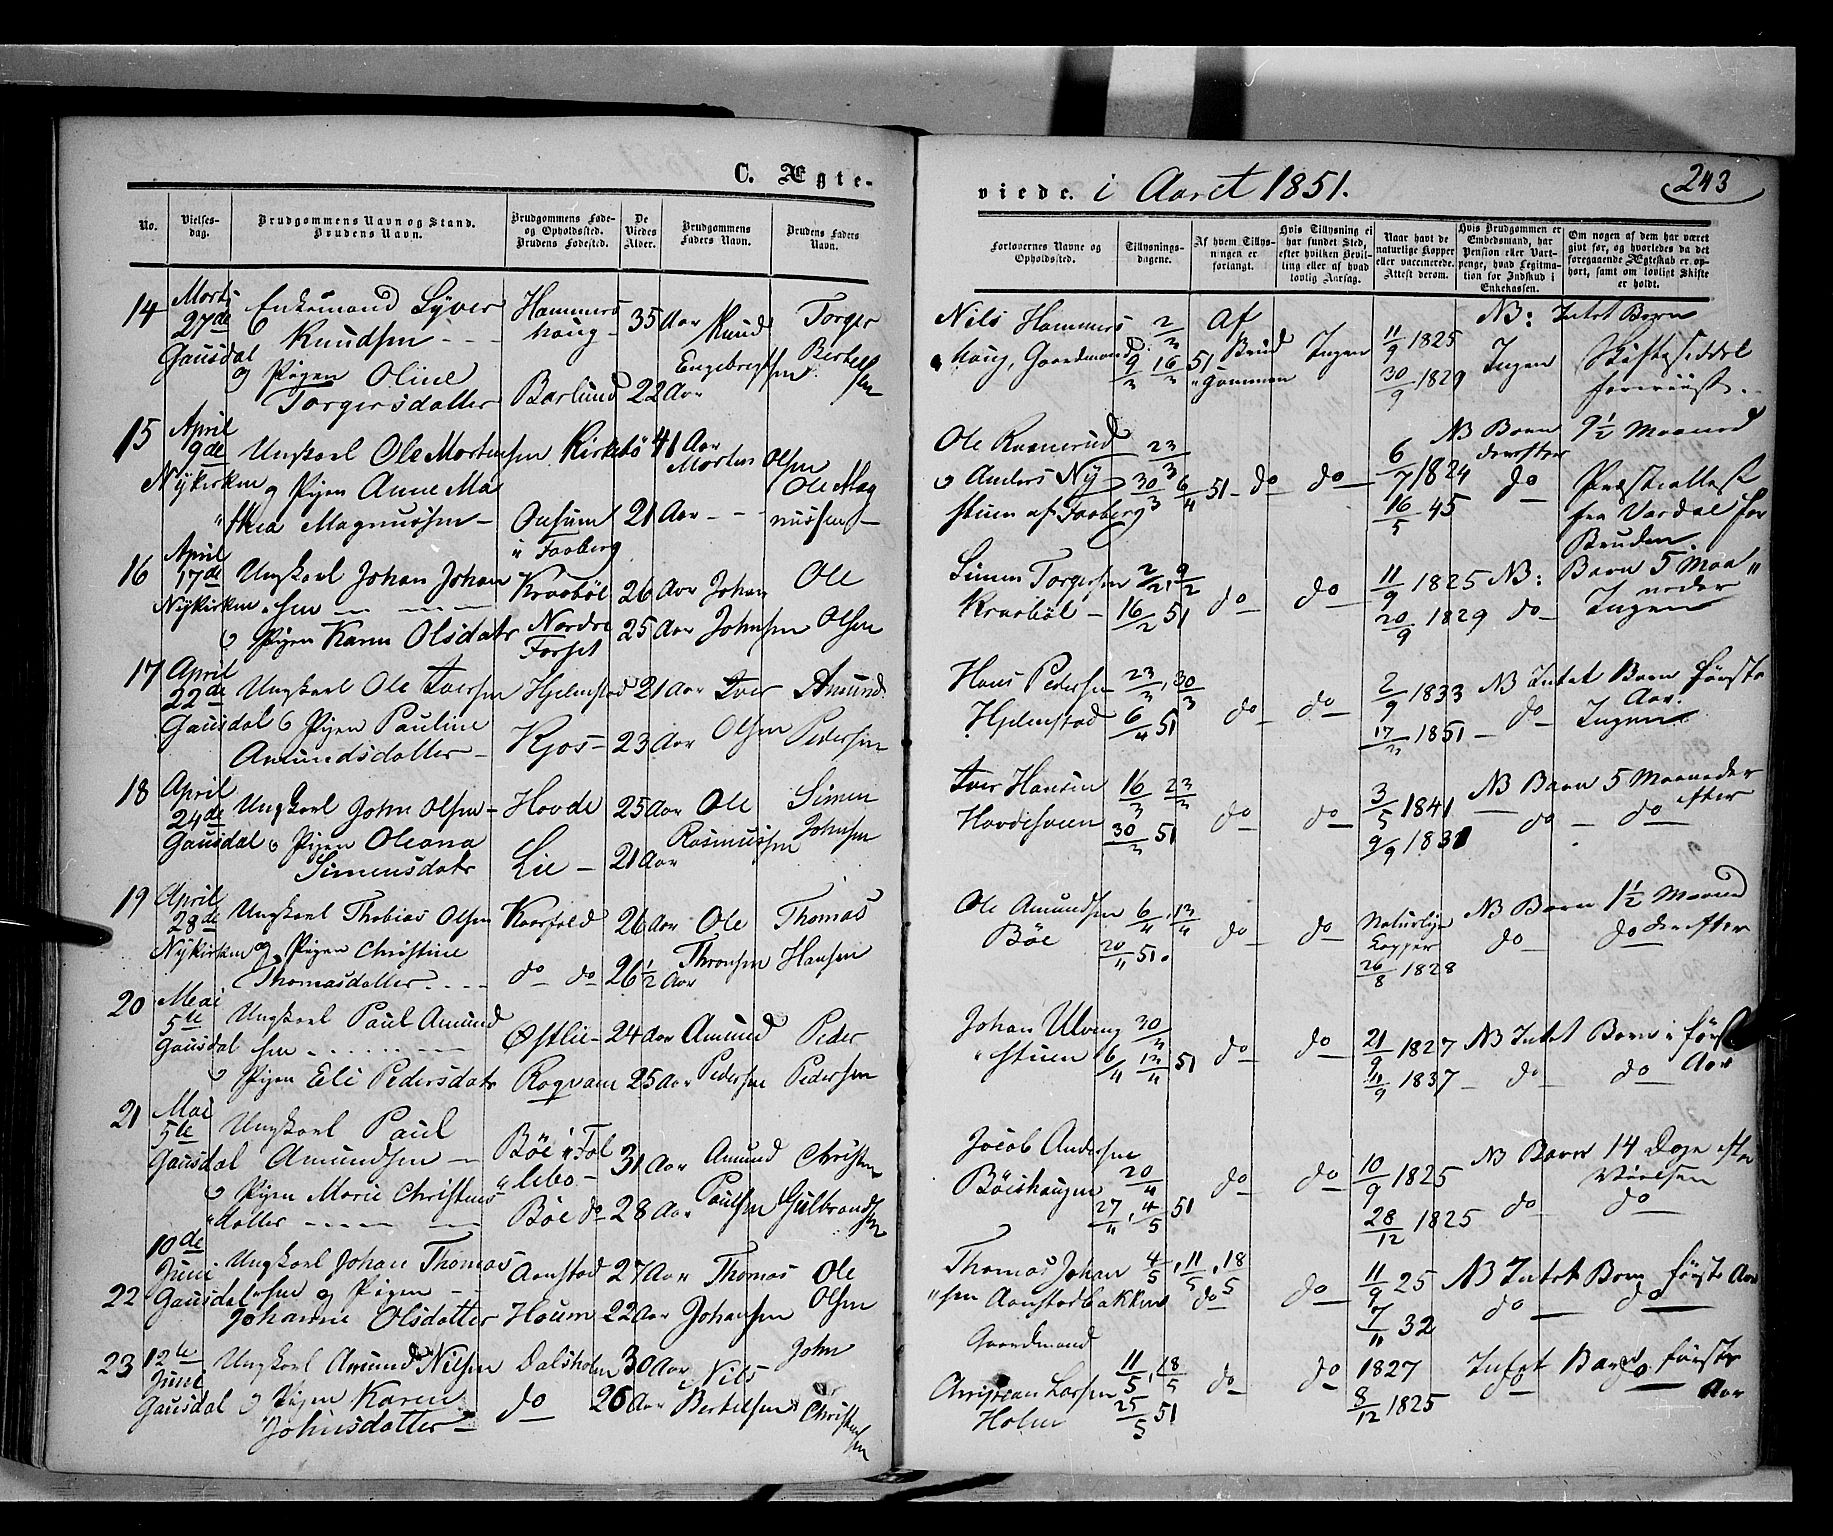 C. Ægte-
No.
Vielses-
dag.
Brudgommens Navn og Stand.
Brudens Navn.
Brudgommens Føde-
og Opholdssted.
Brudens Fødested.
De
Viedes
Alder.
Brudgommens
Faders Navn.
Brudens Faders
Navn.
14
Marts
27de
Gausdal
Enkemand Syver
Knudsen - - -
og Pigen Oline
Torgersdatter
Hammers
haug -
Barlund
35 Aar
22 Aar
Knud
Engebregtsen
Torger
Bertelsen
15
April
9de
Nykirken
Ungkarl Ole Mortensen
og Pigen Anne Ma
"thea Magnussen -
Kirkebø
Onsum
i Faaberg
41 Aar
21 Aar - - -
Morten Olsen
Ole Mag
nussen -
16
April
17de
Nykirken
Ungkarl Johan Johan
"sen - - -
o Pigen Karen Olsdatr
Kraabøl
Nordre
Forset
26 Aar
25 Aar
Johan
Johnsen
Ole
Olsen
17
April
22de
Gausdal
Ungkarl Ole Iversen
o Pigen Pauline
Amundsdatter -
Hjelmstad
Kjos -
21 Aar
23 Aar
Iver
Olsen
Amund
Pedersen
18
April
24de
Gausdal
Ungkarl John Olsen -
o Pigen Oleana
Simensdatr
Hovde
Lie -
25 Aar
21 Aar
Ole
Rasmussen
Simen
Johnsen
19
April
28de
Nykirken
Ungkarl Thobias Olsen
og Pigen Christine
Thomasdatter - - -
do do
26 Aar
26 1/2 Aar
Ole
Thronsen
Thomas
Hansen
20
Mai
5te
Gausdal
Ungkarl Paul Amund
sen - - - -
o Pigen Eli Pedersdatr
Østlie -
Rogvam
24 Aar
25 Aar
Amund
Pedersen
Peder
Pedersen
21
Mai
5te
Gausdal
Ungkarl Paul
Amundsen -
o Pigen Marie Christens
"datter - - -
Bøe i Fol
"lebo -
Bøe do
31 Aar
28 Aar
Amund
Paulsen
Christen
Gulbrandsen
22
10de
Juni
Gausdal
Ungkarl Johan Thomas
"sen og Pigen - -
Johanne Olsdatter
Aanstad
Houm
27 Aar
22 Aar
Thomas
Johansen
Ole
Olsen
23
12te
Juni
Gausdal
Ungkarl Amund Nilsen
o Pigen Karen
Johnsdatter -
Dalsholen
do
30 Aar
26 Aar
Nils
Bertelsen
John
Christensen
viede. i Aaret 1851.
243
Forlovernes Navne og
Opholdssted.
Tillysnings-
dagene.
Af hvem Tillys-
ningen er
forlangt.
Hvis Tillysning ei
har fundet Sted,
efter hvilken Bevil-
ling eller af hvad
lovlig Aarsag.
Naar havt de
naturlige Kopper
eller vaccinerede.
Attest derom.
Hvis Brudgommen er
Embedsmand, har
Pension eller Vart-
penge, hvad Legitima-
tion for Indskud i
Enkekassen.
Om nogen af dem har været
gift før, og hvorledes da det
foregaaende Ægteskab er op-
hørt, samt om lovligt Skifte
er holdt.
Nils Hammers
haug, Gaardmand
2/3
9/3 16/3 51
Af
Brud
"gommen
Ingen
11/9 1825
30/9 1829
Ingen
NB: Intet Barn
Skifteseddel
foreviist.
Ole Kraanerud
o Anders Ny
stuen af Faaberg
23/3
30/3 6/4 51
do
do
6/7 1824
16/5 45
NB Barn 9 1/2 Maaned
derefter
do
Præsteattest
fra Vardal for
Bruden.
Simen Torgersen
Kraabøl -
2/2, 9/2
16/2 51
do
do
11/9 1825
20/9 1829
NB: Barn 5 Maa"
neder
do
Ingen
Hans Pedersen
Hjelmstad
23/3, 30/3
6/4 51
do
do
2/9 1833
1851
NB Intet Barn første
Aar.
do
Ingen
Iver Hansen
Hovdesveen
16/3 23/3
30/3 51
do
do
3/5 1841
9/9 1831
NB Barn 5 Maaneder
efter
do
do
Ole Amundsen
Bøe
6/4, 13/4
20/4 51.
do
do
Naturlige
Kopper
26/8 1828
NB Barn 1 1/2 Maaned
derefter
do
do
Johan Ulving
"stuen
30/3
6/4 13/4 51
do
do
21/9 1827
11/9 1837
NB Intet Barn i første
Aar
do
do
Jacob Andersen
Bøeshaugen
20/4
27/4, 4/5 51
do
do
10/9 1825
28/12 1825
NB Barn 14 Dage efter
Vielsen
do
do
Thomas Johan
"sen Aanstadbakken
Gaardmand
4/5, 11/5, 18/5
do
do
11/9 25
7/11 32
NB Intet Barn første Aar
do
do
Christian Larsen
Holen
11/5, 18/5
25/5 51
do
do
1827
8/12 1825
Intet Barn første
Aar
do
do